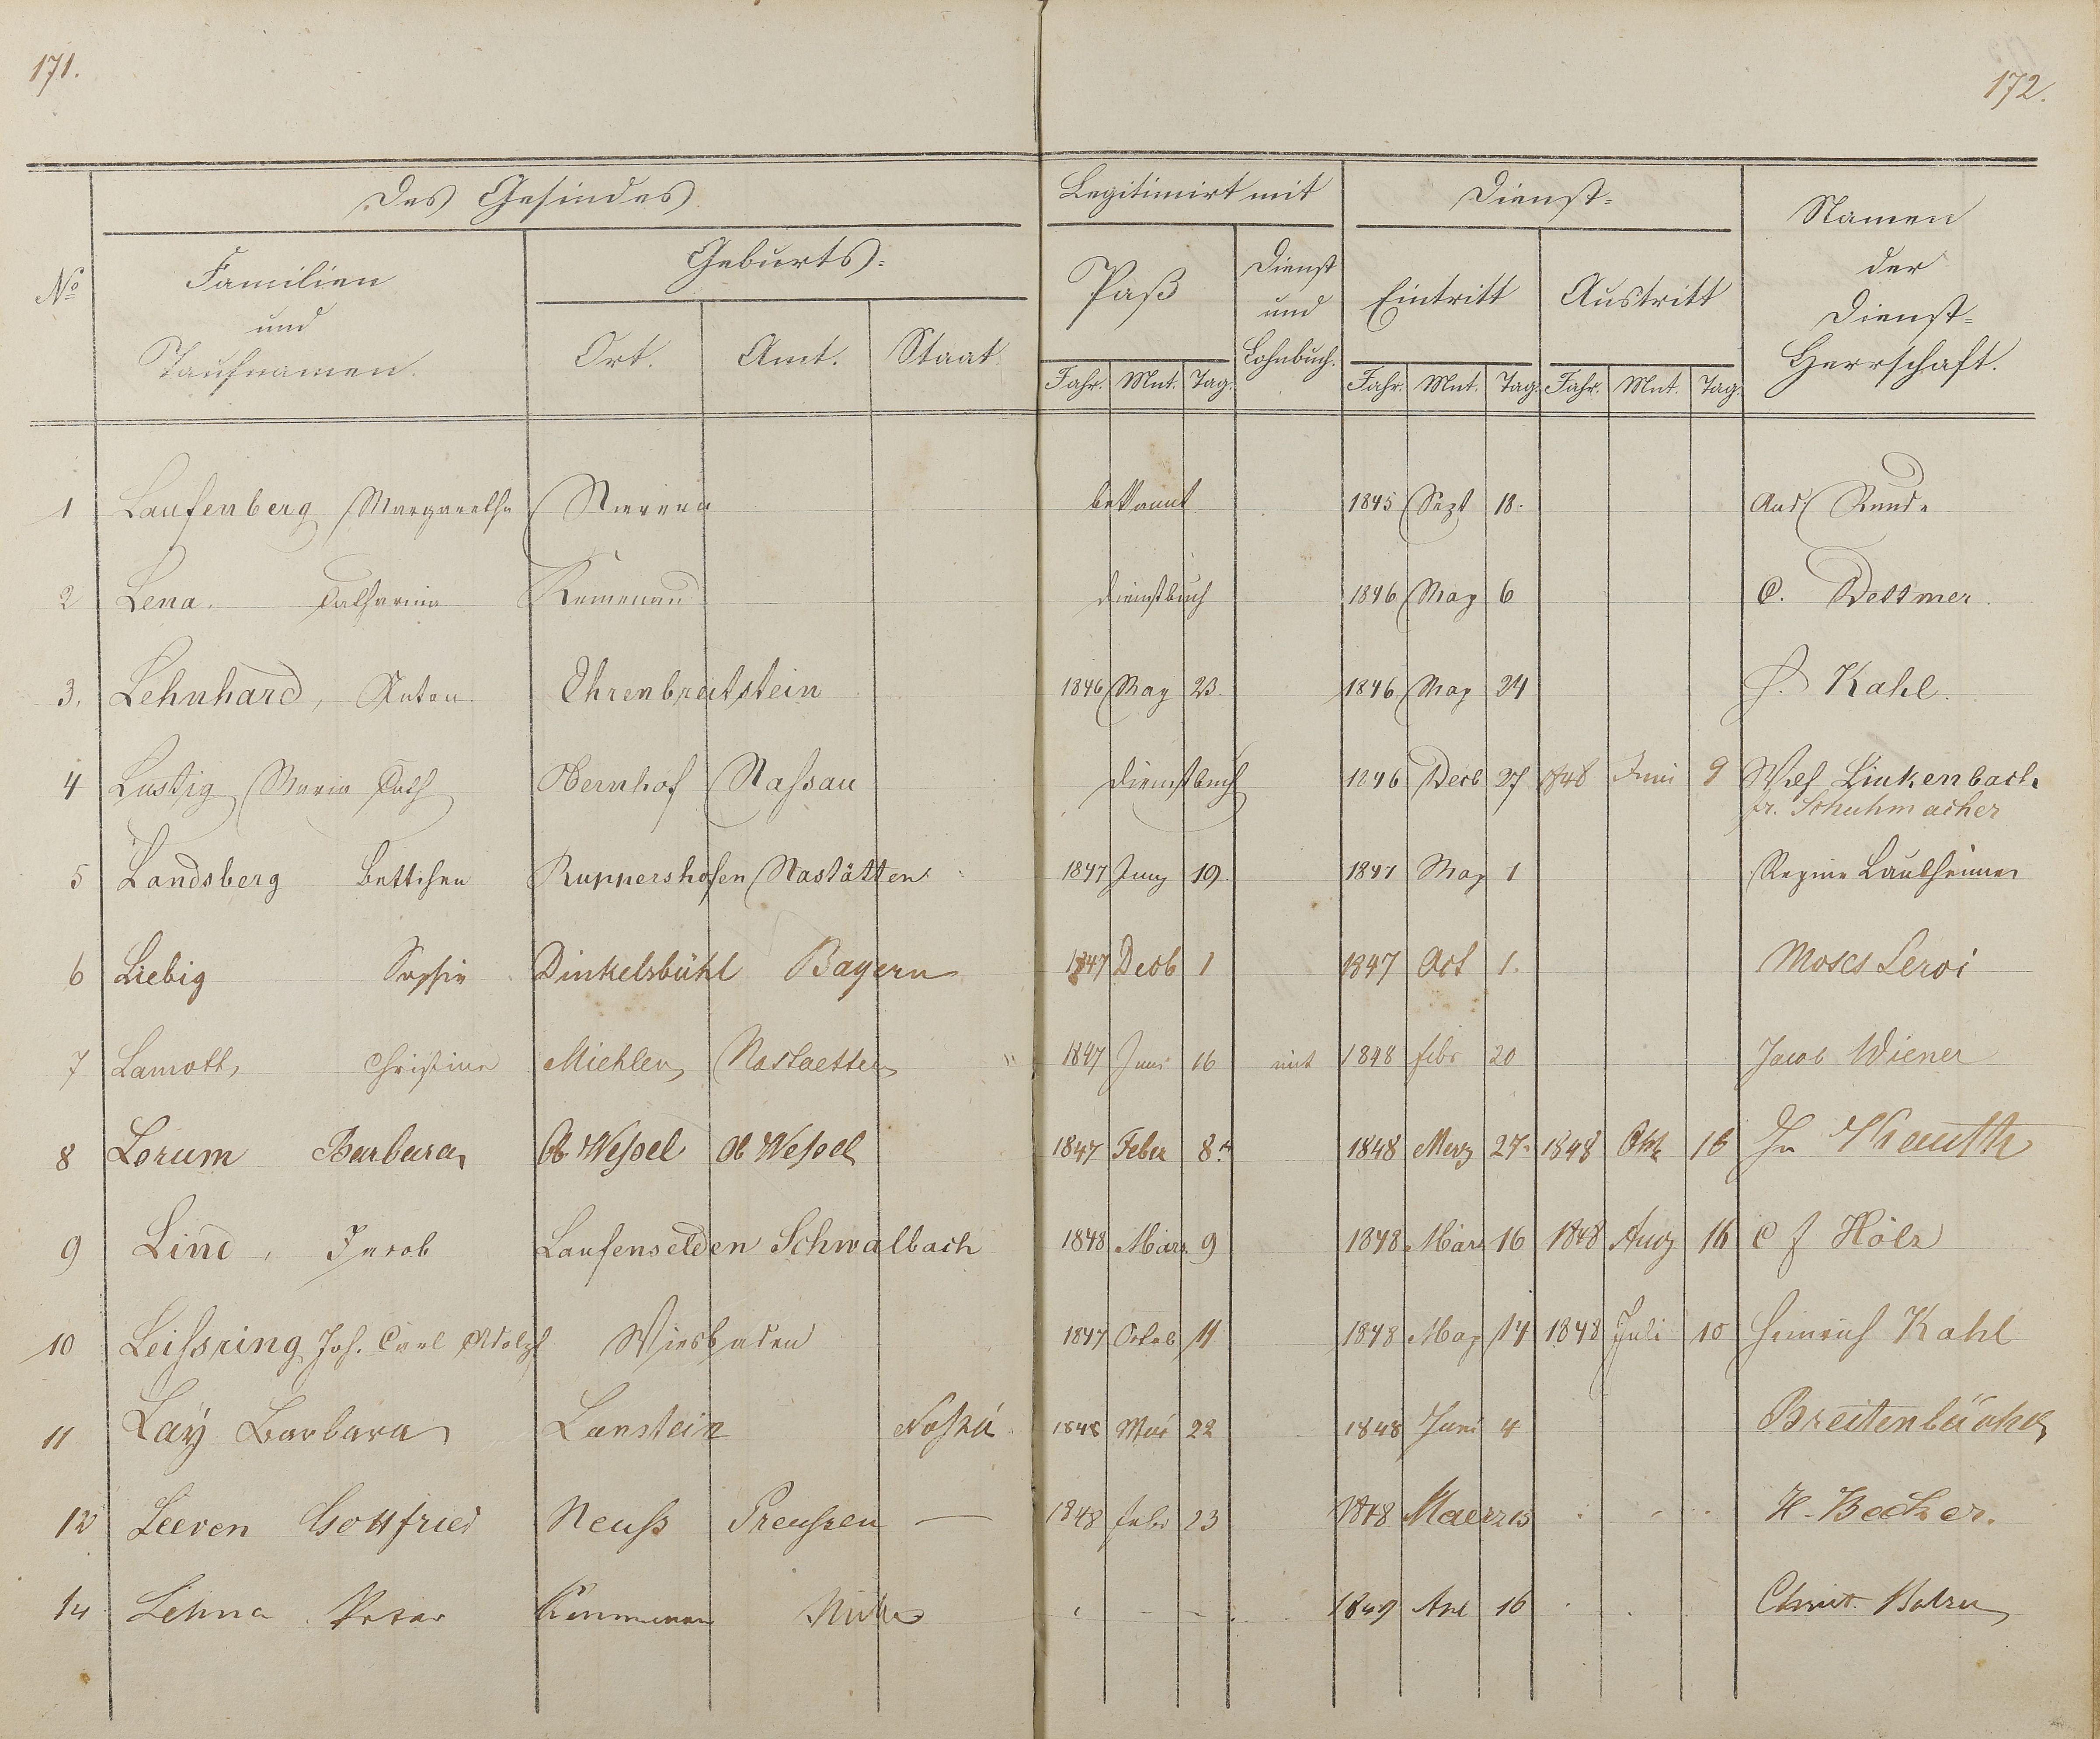 171.
172.
Des Gesindes
Legitimirt mit
Dienst=
Namen
der
Dienst=
Herrschaft.
No
Familien
und
Taufnamen.
Geburts=
Ort. Amt. Staat.
Paß
Dienst
und
Lohnbuch.
Eintritt Austritt
Jahr. Mnt. Tag. Jahr. Mnt. Tag. Jahr. Mnt. Tag.
1 Laufenberg Margarethe bekannt 1845 Sept 18.
2 Lena. Catharina Kemenau Dienstbuch 1846 May 6 C. Dettmer.
3. Lehnhard, Anton Ehrenbreitstein 1846 May 23. 1846 May 24 H. Kahl.
4 Lustig Maria Cath Obernhof Naßau Dienstbuch 1846 Decb 27 1848 Juni 9 Wilh Linkenbach
fr. Schuhmacher
5 Landsberg Bettchen Ruppershofen Nastätten 1847 Juny 19. 1847 May 1 Regine Laubheimer
6 Liebig Sophie Dinkelsbühl Bayern 1847 Decb 1 1847 Oct 1. Moses Leroi
7 Lamott, Christine Miehlen Nastaetten " 1847 Juni 16 mit 1848 febr 20 Jacob Wiener
8 Lorum Barbara Ob Weßel Ob Weßel 1847 Feber 8t 1848 Merz 27. 1848 Okt 16
9 Lind, Jacob Laufenselden Schwalbach 1848 März 9 1848 März 16 1848 Aug 16 C f Hölz
10 Leißring Joh. Carl Adolph Wiesbaden 1847 Octob 11 1848 May 14 1848 Juli 10 Heinrich Kahl
11 Lay Barbara Lanstein Naßau 1848 Mai 22 1848 Juni 4 Breitenbäch
12 Leeven Gottfried Neuß Preußen — 1848 febr 23 1848 Maerz 15 H. Becker.
14 Lehna Peter 1849 16 Christ. Balzer